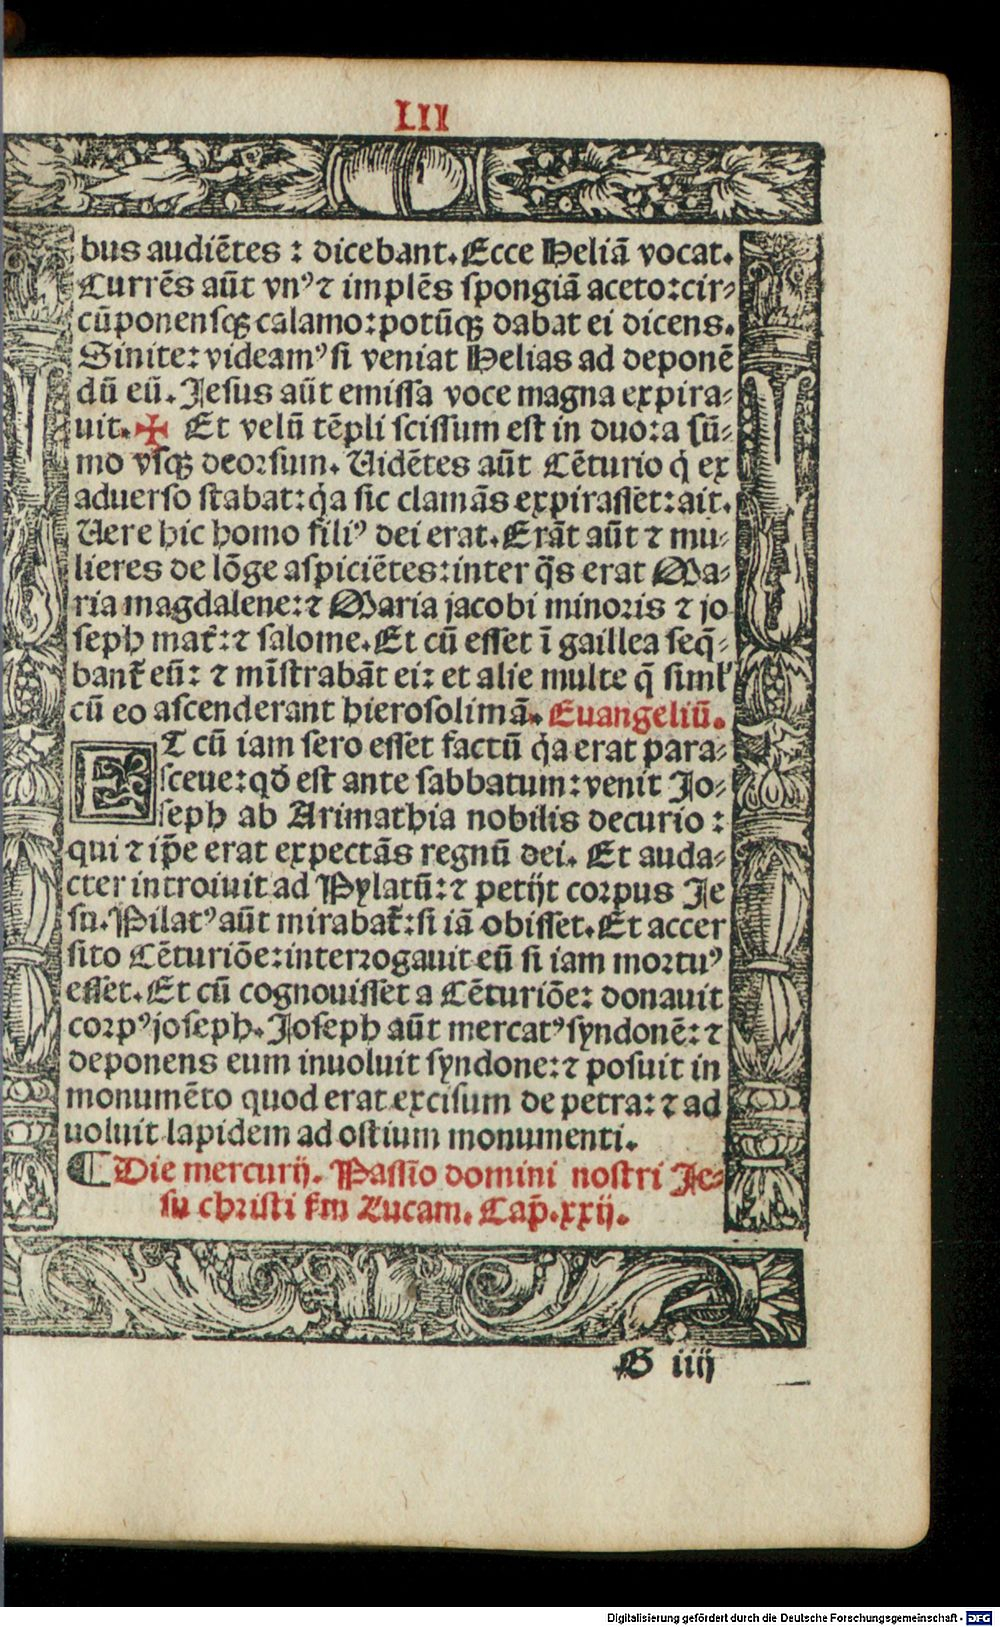 LII
bus audiẽtes : dicebant. Ecce Heliã vocat.
Currẽs aũt vnꝰ ⁊ implẽs spongiã aceto: cir⸗
cũponensqꝫ calamo: potũqꝫ dabat ei dicens.
Sinite: videamꝰ si veniat Helias ad deponẽ
dũ eũ. Jesus aũt emissa voce magna expira⸗
uit. ✠ Et velũ tẽpli scissum est in duo: a sũ⸗
mo vsqꝫ deorsum. Uidẽtes aũt Cẽturio q̇ ex
aduerso stabat: q̇a sic clamãs expirasset: ait.
Uere hic homo filiꝰ dei erat. Erãt aũt ⁊ mu⸗
lieres de lõge aspiciẽtes: inter q̃s erat Ma⸗
ria magdalene: ⁊ Maria jacobi minoris ⁊ jo
seph mat̃: ⁊ salome. Et cũ esset ĩ gaillea seq̃⸗
bant̃ eũ: ⁊ mĩstrabãt ei: et alie multe q̃ simĿ
cũ eo ascenderant hierosolimã. Euangeliũ.
ET cũ iam sero esset factũ q̇a erat para⸗
sceue: qđ est ante sabbatum: venit Jo⸗
seph ab Arimathia nobilis decurio :
qui ⁊ ip̃e erat expectãs regnũ dei. Et auda⸗
cter introiuit ad Pylatũ: ⁊ petijt corpus Je
su. Pilatꝰ aũt mirabat̃: si iã obisset. Et accer
sito Cẽturiõe: interrogauit eũ si iam mortuꝰ
esset. Et cũ cognouisset a Cẽturiõe: donauit
corpꝰ joseph. Joseph aũt mercatꝰ syndonẽ: ⁊
deponens eum inuoluit syndone: ⁊ posuit in
monumẽto quod erat excisum de petra: ⁊ ad
uoluit lapidem ad ostium monumenti.
¶ Die mercurij. Passio domini nostri Je⸗
su christi fm Lucam. Cap̃. xxij.
G iiij
Digitalisierung gefördert durch die Deutsche Forschungsgemeinschaft - DFG